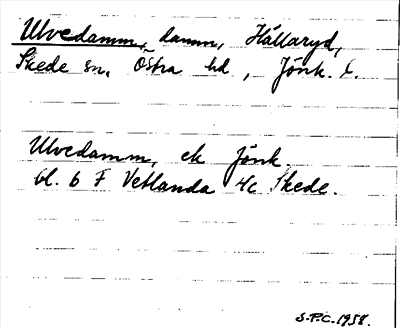 Ulvedamm, damm, Hållaryd,
Skede sn, Östra hd, Jönk. l.
Ulvedamm, ek Jönk.
bl. 6 F Vetlanda 4c Skede.
S.P.C. 1958.